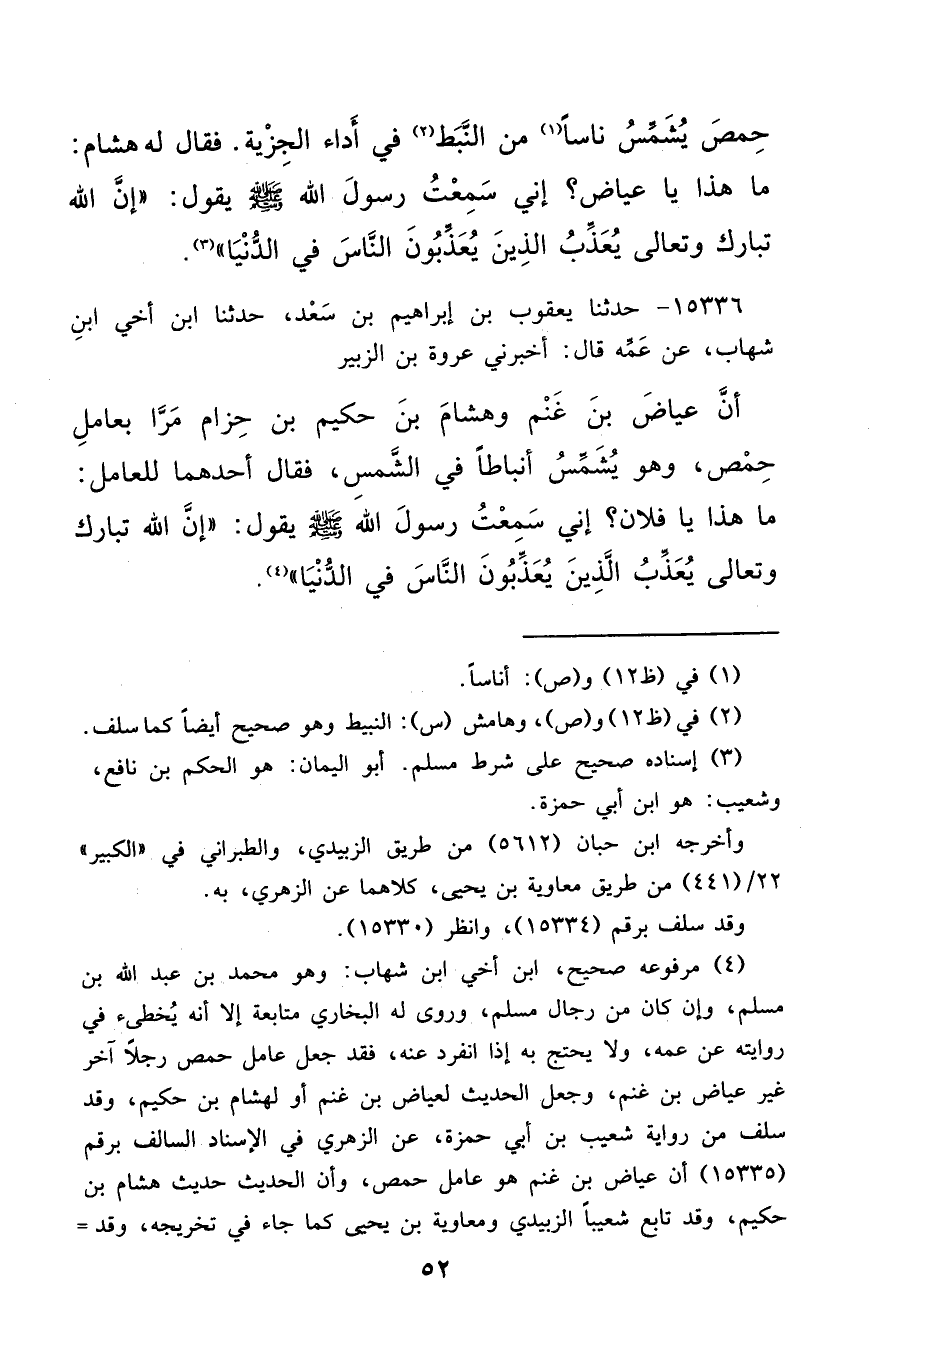 حِمصَ يُشَمِّسُ ناساً(١) من النَّبَط(٢) في أَداء الجِزْية. فقال له هشام:
ما هذا يا عياض؟ إني سَمِعْتُ رسولَ الله ﷺ يقول: «إنَّ الله
تبارك وتعالى يُعَذِّبُ الذِينَ يُعَذِّبُونَ النَّاسَ في الدُّنْيَا»(٣).
١٥٣٣٦- حدثنا يعقوب بن إبراهيم بن سَعْد، حدثنا ابن أخي ابنِ
شهاب، عن عَمِّه قال: أخبرني عروة بن الزبير
أنَّ عياضَ بنَ غَنْم وهشامَ بنَ حكيم بن حِزام مَرَّا بعاملِ
حِمْص، وهو يُشَمِّسُ أنباطاً في الشَّمسِ، فقال أحدهما للعامل:
ما هذا يا فلان؟ إني سَمِعْتُ رسولَ الله ﷺ يقول: «إنَّ الله تبارك
وتعالى يُعَذِّبُ الَّذِينَ يُعَذِّبُونَ النَّاسَ في الدُّنْيَا»(٤).
(١) في (ظ١٢) و(ص): أناساً.
(٢) في (ظ١٢) و(ص)، وهامش (س): النبيط وهو صحيح أيضاً كما سلف.
(٣) إسناده صحيح على شرط مسلم. أبو اليمان: هو الحكم بن نافع،
وشعيب: هو ابن أبي حمزة.
وأخرجه ابن حبان (٥٦١٢) من طريق الزبيدي، والطبراني في «الكبير»
٢٢/(٤٤١) من طريق معاوية بن يحيى، كلاهما عن الزهري، به.
وقد سلف برقم (١٥٣٣٤)، وانظر (١٥٣٣٠).
(٤) مرفوعه صحيح، ابن أخي ابن شهاب: وهو محمد بن عبد الله بن
مسلم، وإن كان من رجال مسلم، وروى له البخاري متابعة إلا أنه يُخطىء في
روايته عن عمه، ولا يحتج به إذا انفرد عنه، فقد جعل عامل حمص رجلاً آخر
غير عياض بن غنم، وجعل الحديث لعياض بن غنم أو لهشام بن حكيم، وقد
سلف من رواية شعيب بن أبي حمزة، عن الزهري في الإسناد السالف برقم
(١٥٣٣٥) أن عياض بن غنم هو عامل حمص، وأن الحديث حديث هشام بن
حكيم، وقد تابع شعيباً الزبيدي ومعاوية بن يحيى كما جاء في تخريجه، وقد =
٥٢